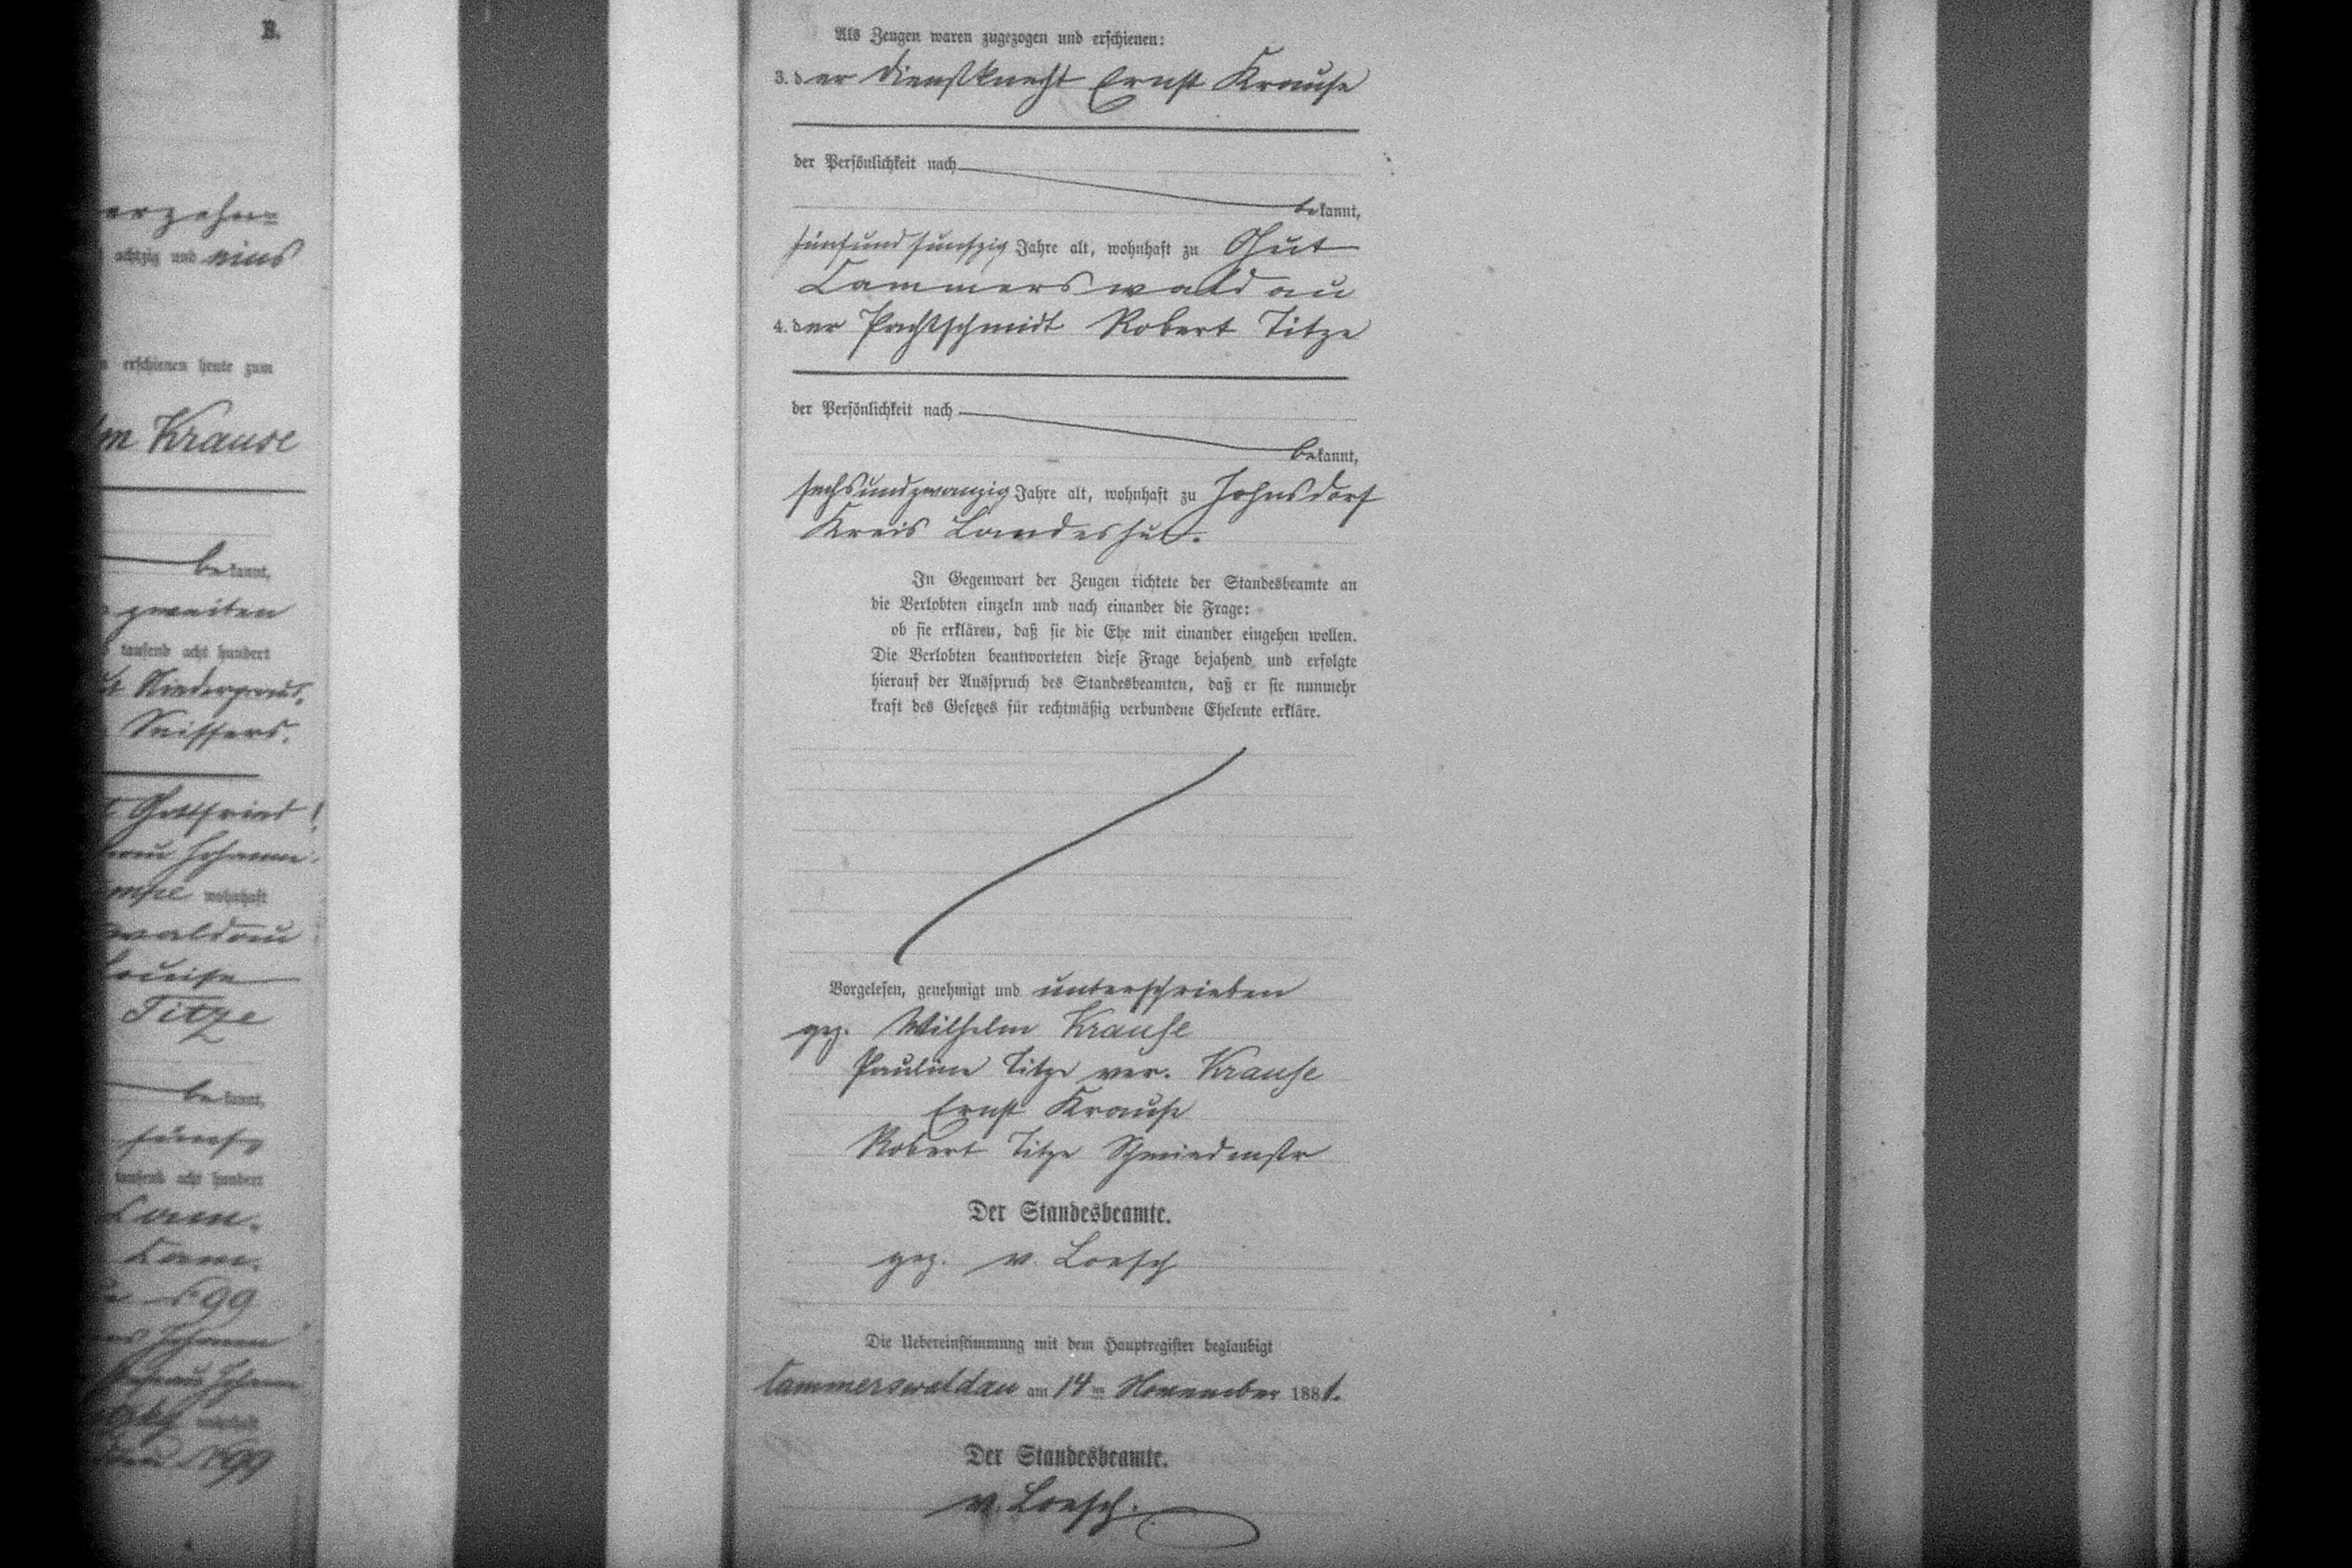 B.
erzehn=
achtzig und eins
erschienen heute zum
Krause
bekannt,
zweiten
tausend acht hundert
Seiffers.
Gottfried
wohnhaft
waldau
Louise
Titze
bekannt,
fünf
tausend acht hundert
Cam.
Cam.
No 99
Johann
No 99
Als Zeugen waren zugezogen und erschienen:
3. der Dienstknecht Ernst Krause
der Persönlichkeit nach
bekannt,
fünfundfünfzig Jahre alt, wohnhaft zu Gut
Cammerswaldau
4. der Pachtschmidt Robert Titze
der Persönlichkeit nach
bekannt,
sechsundzwanzig Jahre alt, wohnhaft zu Johnsdorf
Kreis Landeshut.
In Gegenwart der Zeugen richtete der Standesbeamte an
die Verlobten einzeln und nach einander die Frage:
ob sie erklären, daß sie die Ehe mit einander eingehen wollen.
Die Verlobten beantworteten diese Frage bejahend und erfolgte
hierauf der Ausspruch des Standesbeamten, daß er sie nunmehr
kraft des Gesetzes für rechtmäßig verbundene Eheleute erkläre.
Vorgelesen, genehmigt und unterschrieben
gez. Wilhelm Krause
Pauline Titze ver. Krause
Ernst Krause
Robert Titze Schmiedmstr
Der Standesbeamte.
gez. v. Loesch
Die Uebereinstimmung mit dem Hauptregister beglaubigt
Cammerswaldau am 14ten November 1881.
Der Standesbeamte.
v. Loesch.